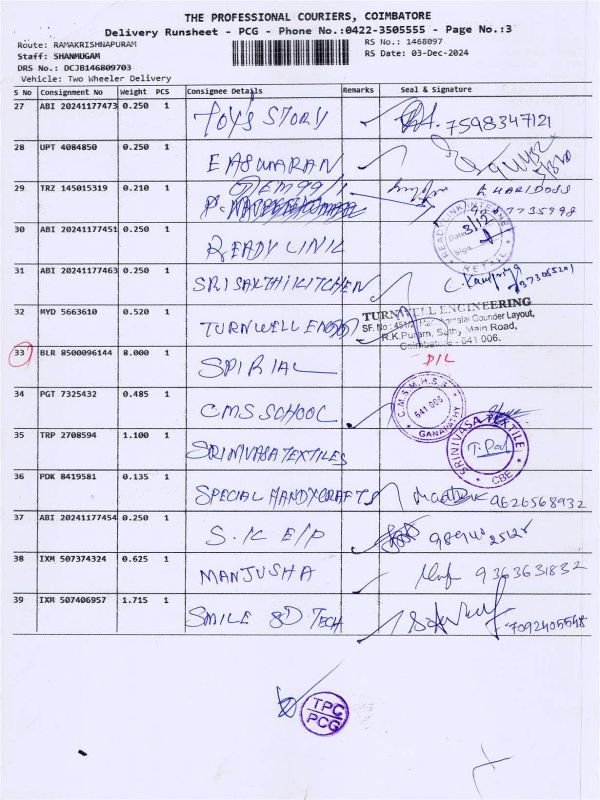 THE PROFESSIONAL COURIERS, COIMBATORE
Delivery Runsheet - PCG - Phone No.:0422-3505555 - Page No.:3
Route: RAMAKRISHNAPURAM
RS No.: 1468097
Staff: SHANMUGAM
RS Date: 03-Dec-2024
DRS No.: DCJB146809703
Vehicle: Two Wheeler Delivery
S No Consignment No Weight PCS Consignee Details Remarks Seal & Signature
27 ABI 20241177473 0.250 1 TOY'S STORY 7598347121
28 UPT 4084850 0.250 1 EASWARAN
29 TRZ 145015319 0.210 1 K HARIDOSS
30 ABI 20241177451 0.250 1 READY LINIL
READY LINK INTERNET
Date: 3/12
Sign.
RETAIL
31 ABI 20241177463 0.250 1 SRI SAKTHI KITCHEN
32 MYD 5663610 0.520 1 TURNWELL ENGG
TURNWELL ENGINEERING
SF. No : 451/2, Gounder Layout,
R.K.Puram, Sathy Main Road,
Coimbatore - 641 006.
33 BLR 8500096144 8.000 1 SPIRIAL D/L
34 PGT 7325432 0.485 1 CMS SCHOOL
C.M.S.M.H.S.S
641 006
GANAPATHY
35 TRP 2708594 1.100 1 SRINIVASA TEXTILES
SRINIVASA TEXTILE
CBE
36 PDK 8419581 0.135 1 SPECIAL HANDYCRAFTS 9626568932
37 ABI 20241177454 0.250 1 S.K E/P
38 IXM 507374324 0.625 1 MANJUSHA 9363631832
39 IXM 507406957 1.715 1 SMILE 3D TECH 7092405548
TPC
PCG